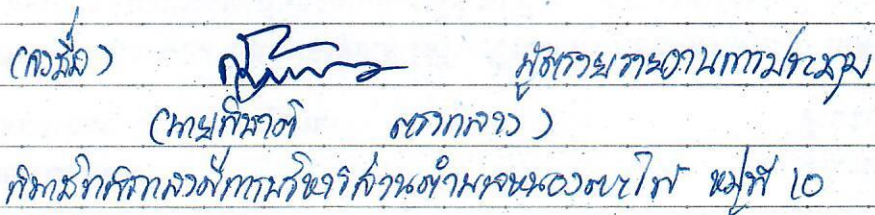 (ลงชื่อ) ผู้ตรวจรายงานการประชุม
(นายทินวดี ตรงกลาง)
สมาชิกสภาองค์การบริหารส่วนตำบลหนองตะไก้ หมู่ที่ 10